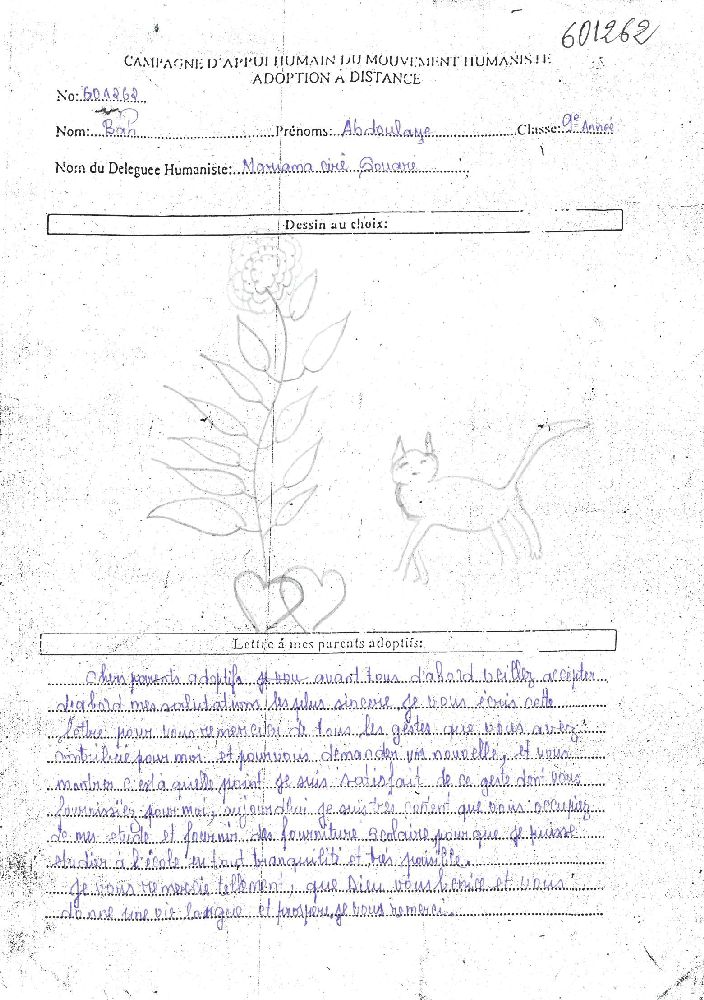 601262
CAMPAGNE D'APPUI HUMAIN DU MOUVEMENT HUMANISTE
ADOPTION A DISTANCE
No: 601262
Nom: Bah Prénoms: Abdoulaye Classe: 9e Année
Nom du Deleguee Humaniste: Mariama ciré Gouare
Dessin au choix:
Lettre á mes parents adoptifs:
Chers parents adoptifs je vou avant tous d'abord veillez accepter
d'abord mes salutations les plus sincere je vous écris cette
lettre pour vous remercier de tous les gestes que vous avez
pour moi et pour vous demander vos nouvelle, et vous
montrer c'est a quelle point je suis satisfait de ce geste dont vous
fournissiez pour moi, aujourd'hui je suis tres content que vous occupez
de mes etude et fournir des fourniture scolaire pour que je puisse
etudier a l'école en tout tranquilité et tres paisible.
je vous remercie tellement, que Dieu vous benise et vous
donne une vie longue et prospere, je vous remerci.